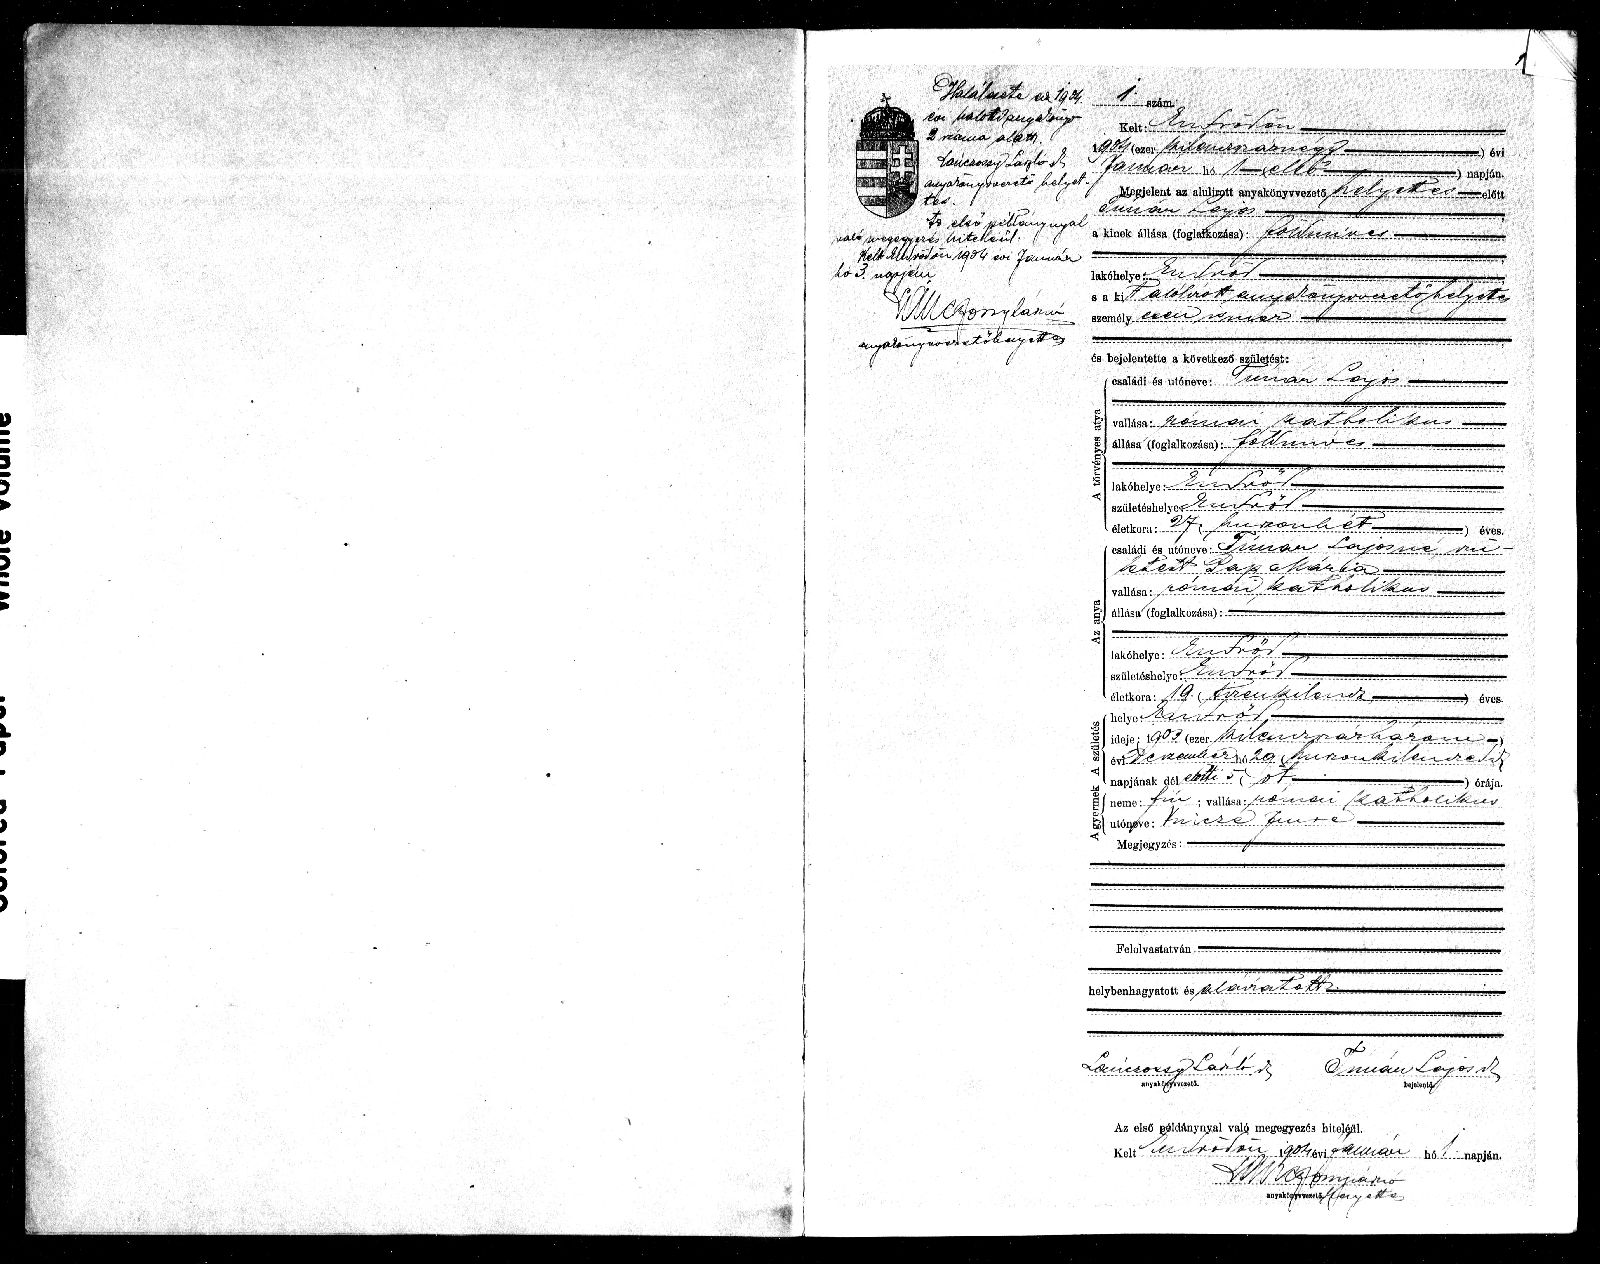 Halálesete az 1904.
évi halotti anyakönyv
2 száma alatt.
László dr
anyakönyvvezető helyet-
tes.
Az első példánynyal
való megegyezés hiteléül.
Kelt Endrődön 1904 évi Január
hó 3. napján
anyakönyvvezetőhelyettes
1. szám.
Kelt: Endrődön
1904 (ezer kilenczszáznégy) évi
Januar hó 1 (első) napján.
Megjelent az alulirott anyakönyvvezető helyettes előtt
Lajos
a kinek állása (foglalkozása): földmives
lakóhelye: Endrőd
s a kit alólirott anyakönyvvezetőhelyettes
személyesen ismer
és bejelentette a következő születést:
A törvényes atya
családi és utóneve: Lajos
vallása: római katholikus
állása (foglalkozása): földmives
lakóhelye: Endrőd
születéshelye: Endrőd
életkora: 27 (huszonhét) éves.
Az anya
családi és utóneve: Lajosné szü-
letett Mária
vallása: római katholikus
állása (foglalkozása):
lakóhelye: Endrőd
születéshelye: Endrőd
életkora: 19 (tizenkilencz) éves.
A gyermek A születés
helye: Endrőd
ideje: 1903 (ezer kilenczszázhárom)
évi Deczember hó 29 (huszonkilenczedik)
napjának dél előtti 5 (öt) órája.
neme: fiú ; vallása: római katholikus
utóneve: Imre
Megjegyzés:
Felolvastatván
helybenhagyatott és aláiratott.
László dr
Lajos dr
anyakönyvvezető.
bejelentő.
Az első példánynyal való megegyezés hiteléül.
Kelt Endrődön 1904 évi Január hó 1 napján.
anyakönyvvezető helyettes
Colored Paper Whole Volume